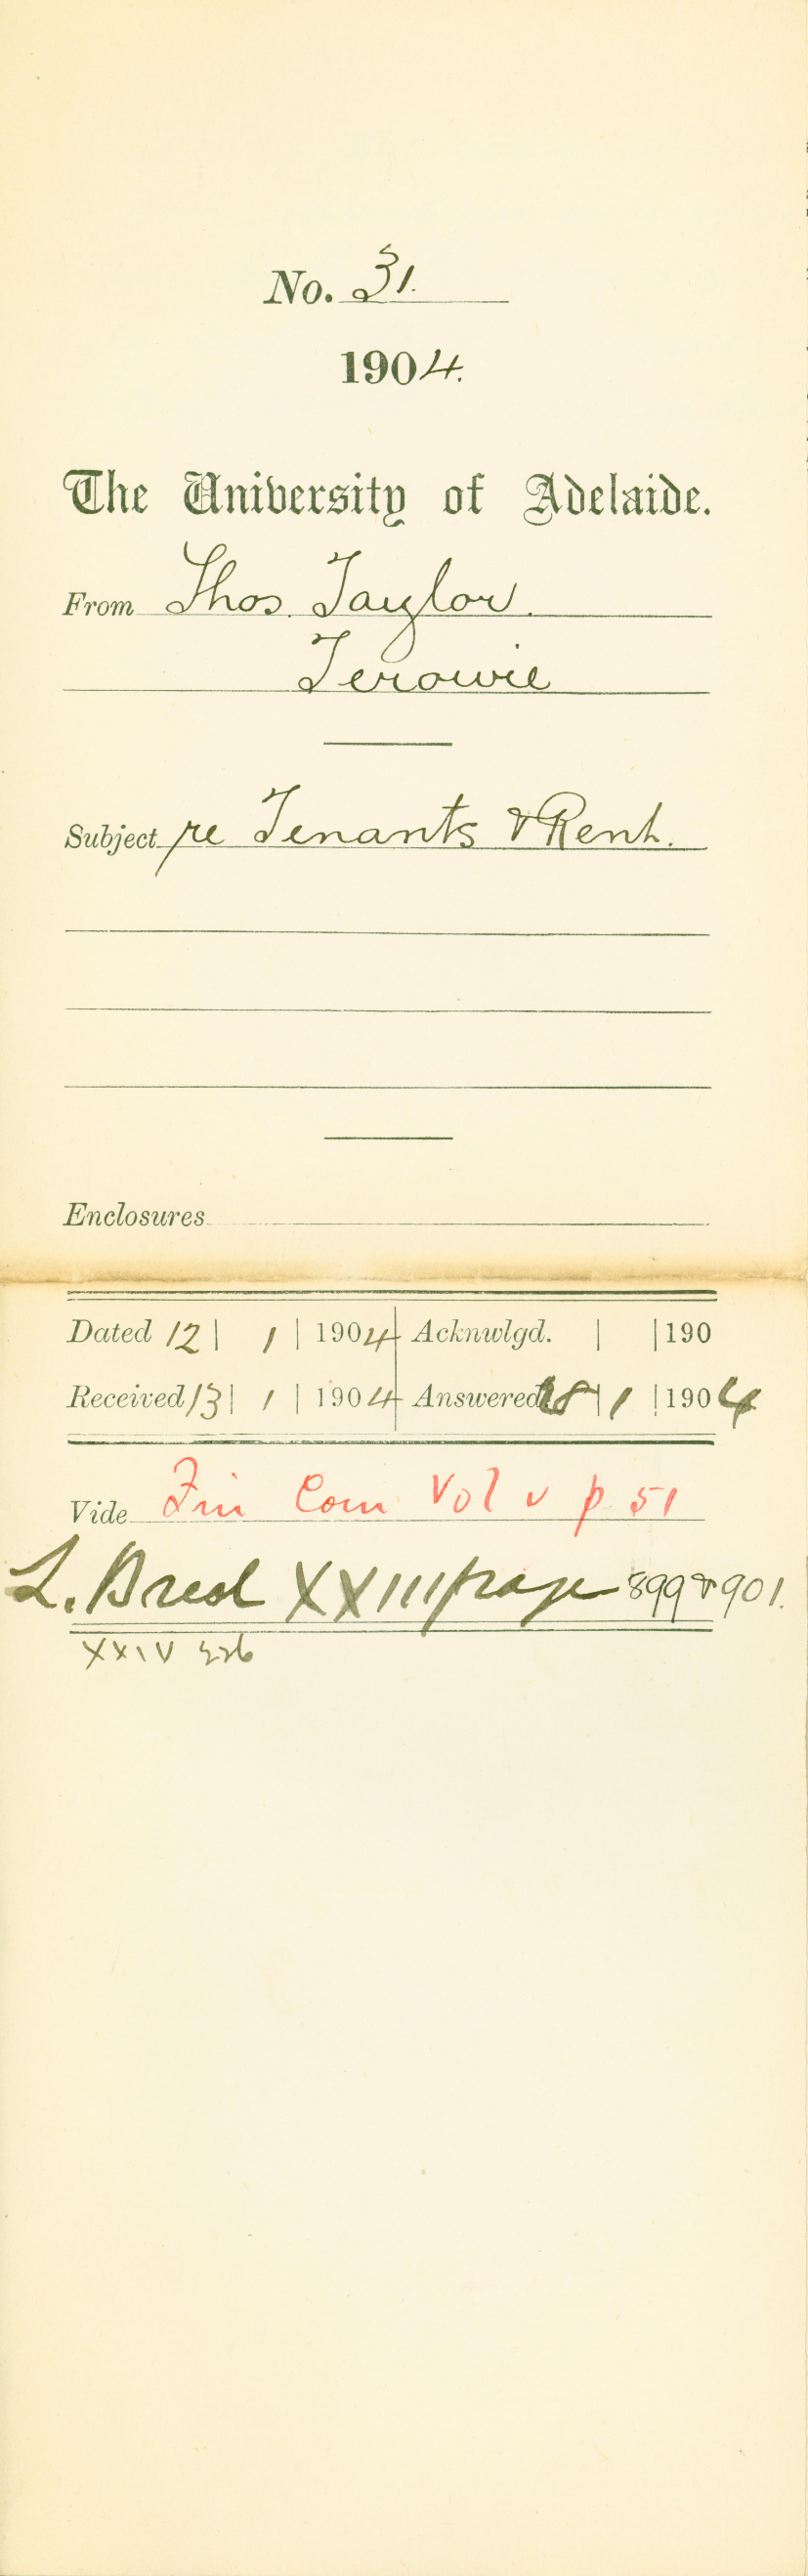 No. 31.
1904.
The University of Adelaide.
From Thos. Taylor.
Terowie
Subject re Tenants & Rent.
Enclosures
Dated 12 | 1 | 1904 Acknwlgd. | | 190
Received 13 | 1 | 1904 Answered 18 | 1 | 1904
Vide Fin Com Vol v p 51
L. XXIII page 899 & 901.
XXIV